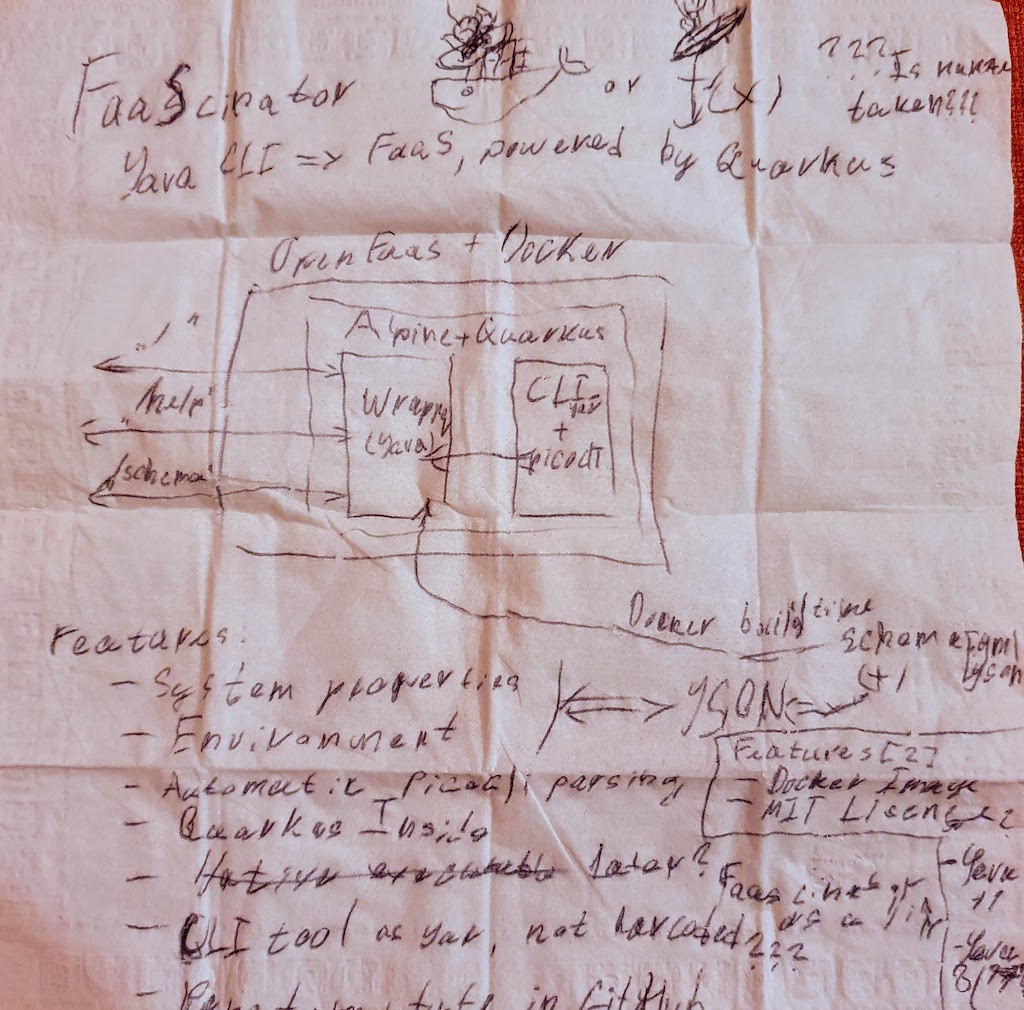 FaaScinator
or f(x)
??? Is name
taken?!!
Java CLI => FaaS, powered by Quarkus
OpenFaas + Docker
Alpine+Quarkus
"/"
"/help"
"/schema"
Wrapper
(Java)
CLI
jar
+
picocli
Docker build time
schema
(+)
Features:
- System properties
- Environment
JSON
- Automatic Picocli parsing
- Quarkus Inside
later?
- CLI tool as jar, not harcoded
???
in GitHub
Features[2]
- Docker Image
- MIT Lisense?
as a
- Java
11
- Java
8(???